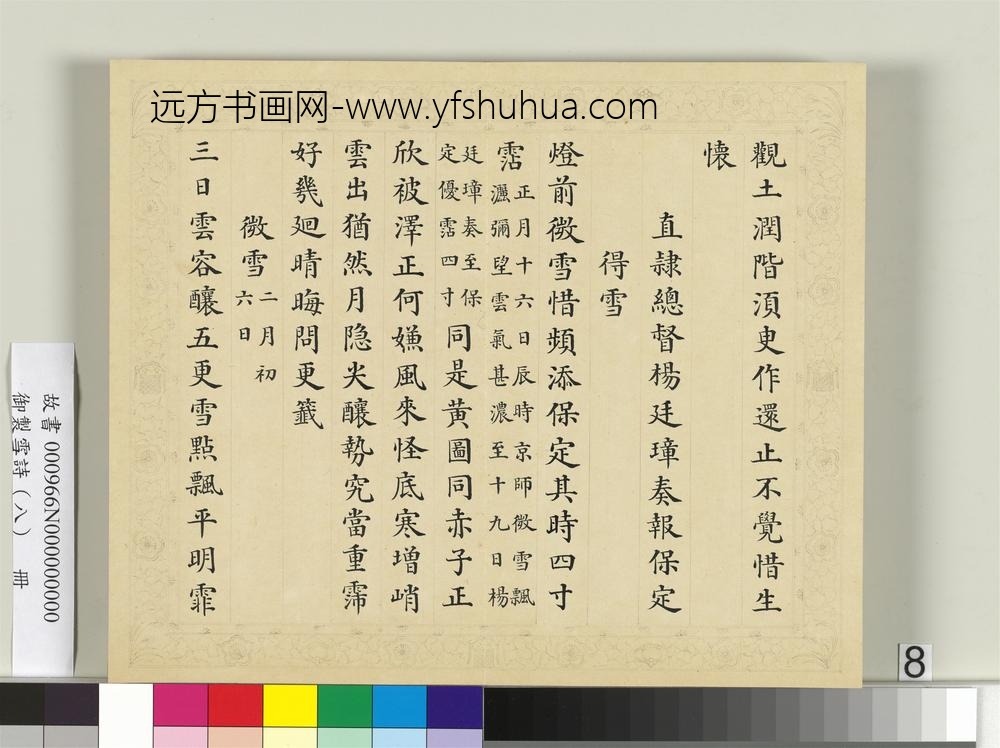 远方书画网-www.yfshuhua.com
觀土潤階湏臾作還止不覺惜生
懷
直隷總督楊廷璋奏報保定
得雪
燈前微雪惜頻添保定其時四寸
霑
正月十六日辰時京師微雪飄
灑彌望雲氣甚濃至十九日楊
廷璋奏至保
定優霑四寸
同是黃圖同赤子正
欣被澤正何嫌風來怪底寒增峭
雲出猶然月隐尖釀勢究當重霈
好幾廻晴晦問更籤
微雪
二月初
六日
三日雲容釀五更雪點飄平明霏
故書 000966N000000000
御製雪詩（八） 冊
8